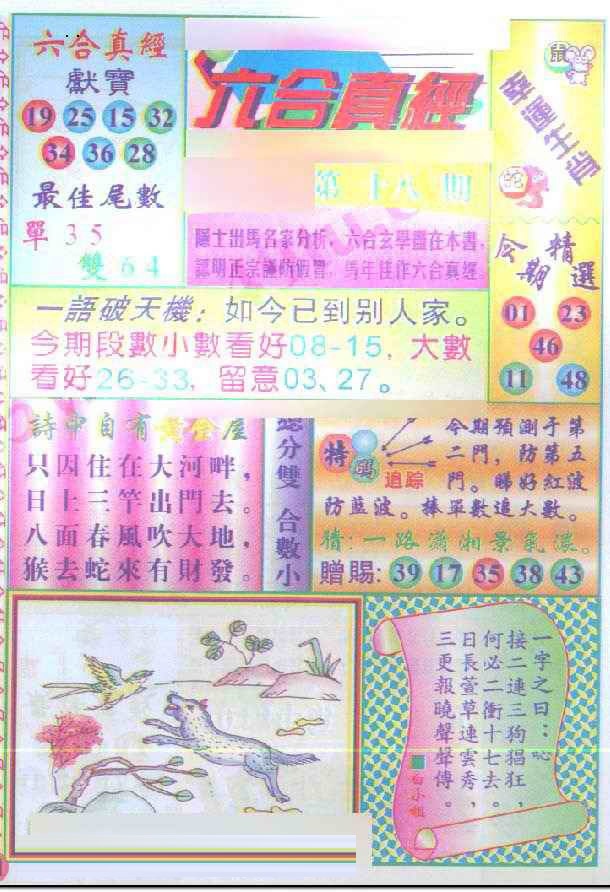 六合真經
獻寶
19 25 15 32
34 36 28
最佳尾數
單 3 5
雙 6 4
六合真經
第十八期
隱士出馬名家分析，六合玄學盡在本書，
認明正宗謹防假冒，馬年佳作六合真經。
鼠
幸運生肖
蛇
今期精選
01 23
46
11 48
一語破天機：如今已到别人家。
今期段數小數看好08-15，大數
看好26-33，留意03、27。
詩中自有黄金屋
只因住在大河畔，
日上三竿出門去。
八面春風吹大地，
猴去蛇來有財發。
總分雙 合數小
特碼
追踪
今期預測于第
二門，防第五
門。睇好紅波
防藍波。捧單數追大數。
猜：一路瀟湘景氣濃。
贈賜：39 17 35 38 43
一字之曰：吣
接二連三狗猖狂，
何必二衝十七去。
日長萱草連雲秀，
三更報曉聲聲傳。
白小姐